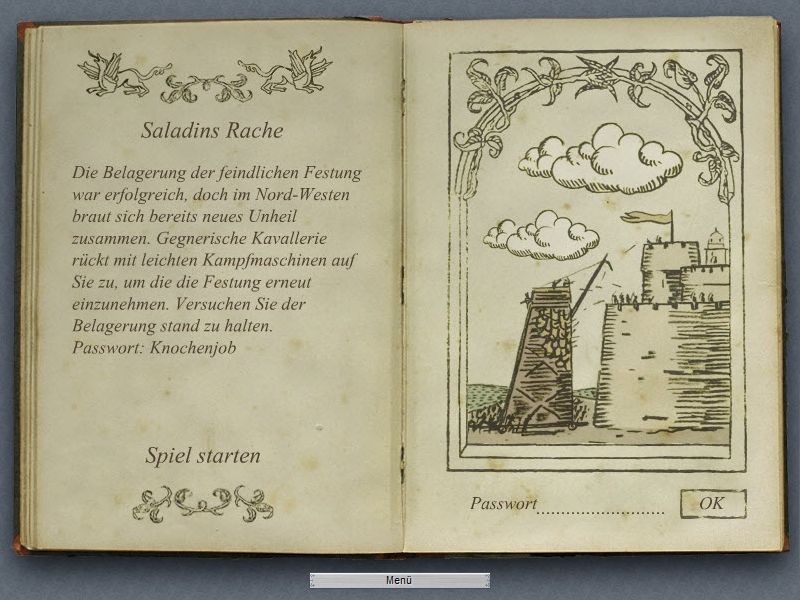 Saladins Rache
Die Belagerung der feindlichen Festung
war erfolgreich, doch im Nord-Westen
braut sich bereits neues Unheil
zusammen. Gegnerische Kavallerie
rückt mit leichten Kampfmaschinen auf
Sie zu, um die die Festung erneut
einzunehmen. Versuchen Sie der
Belagerung stand zu halten.
Passwort: Knochenjob
Spiel starten
Passwort..........................
OK
Menü